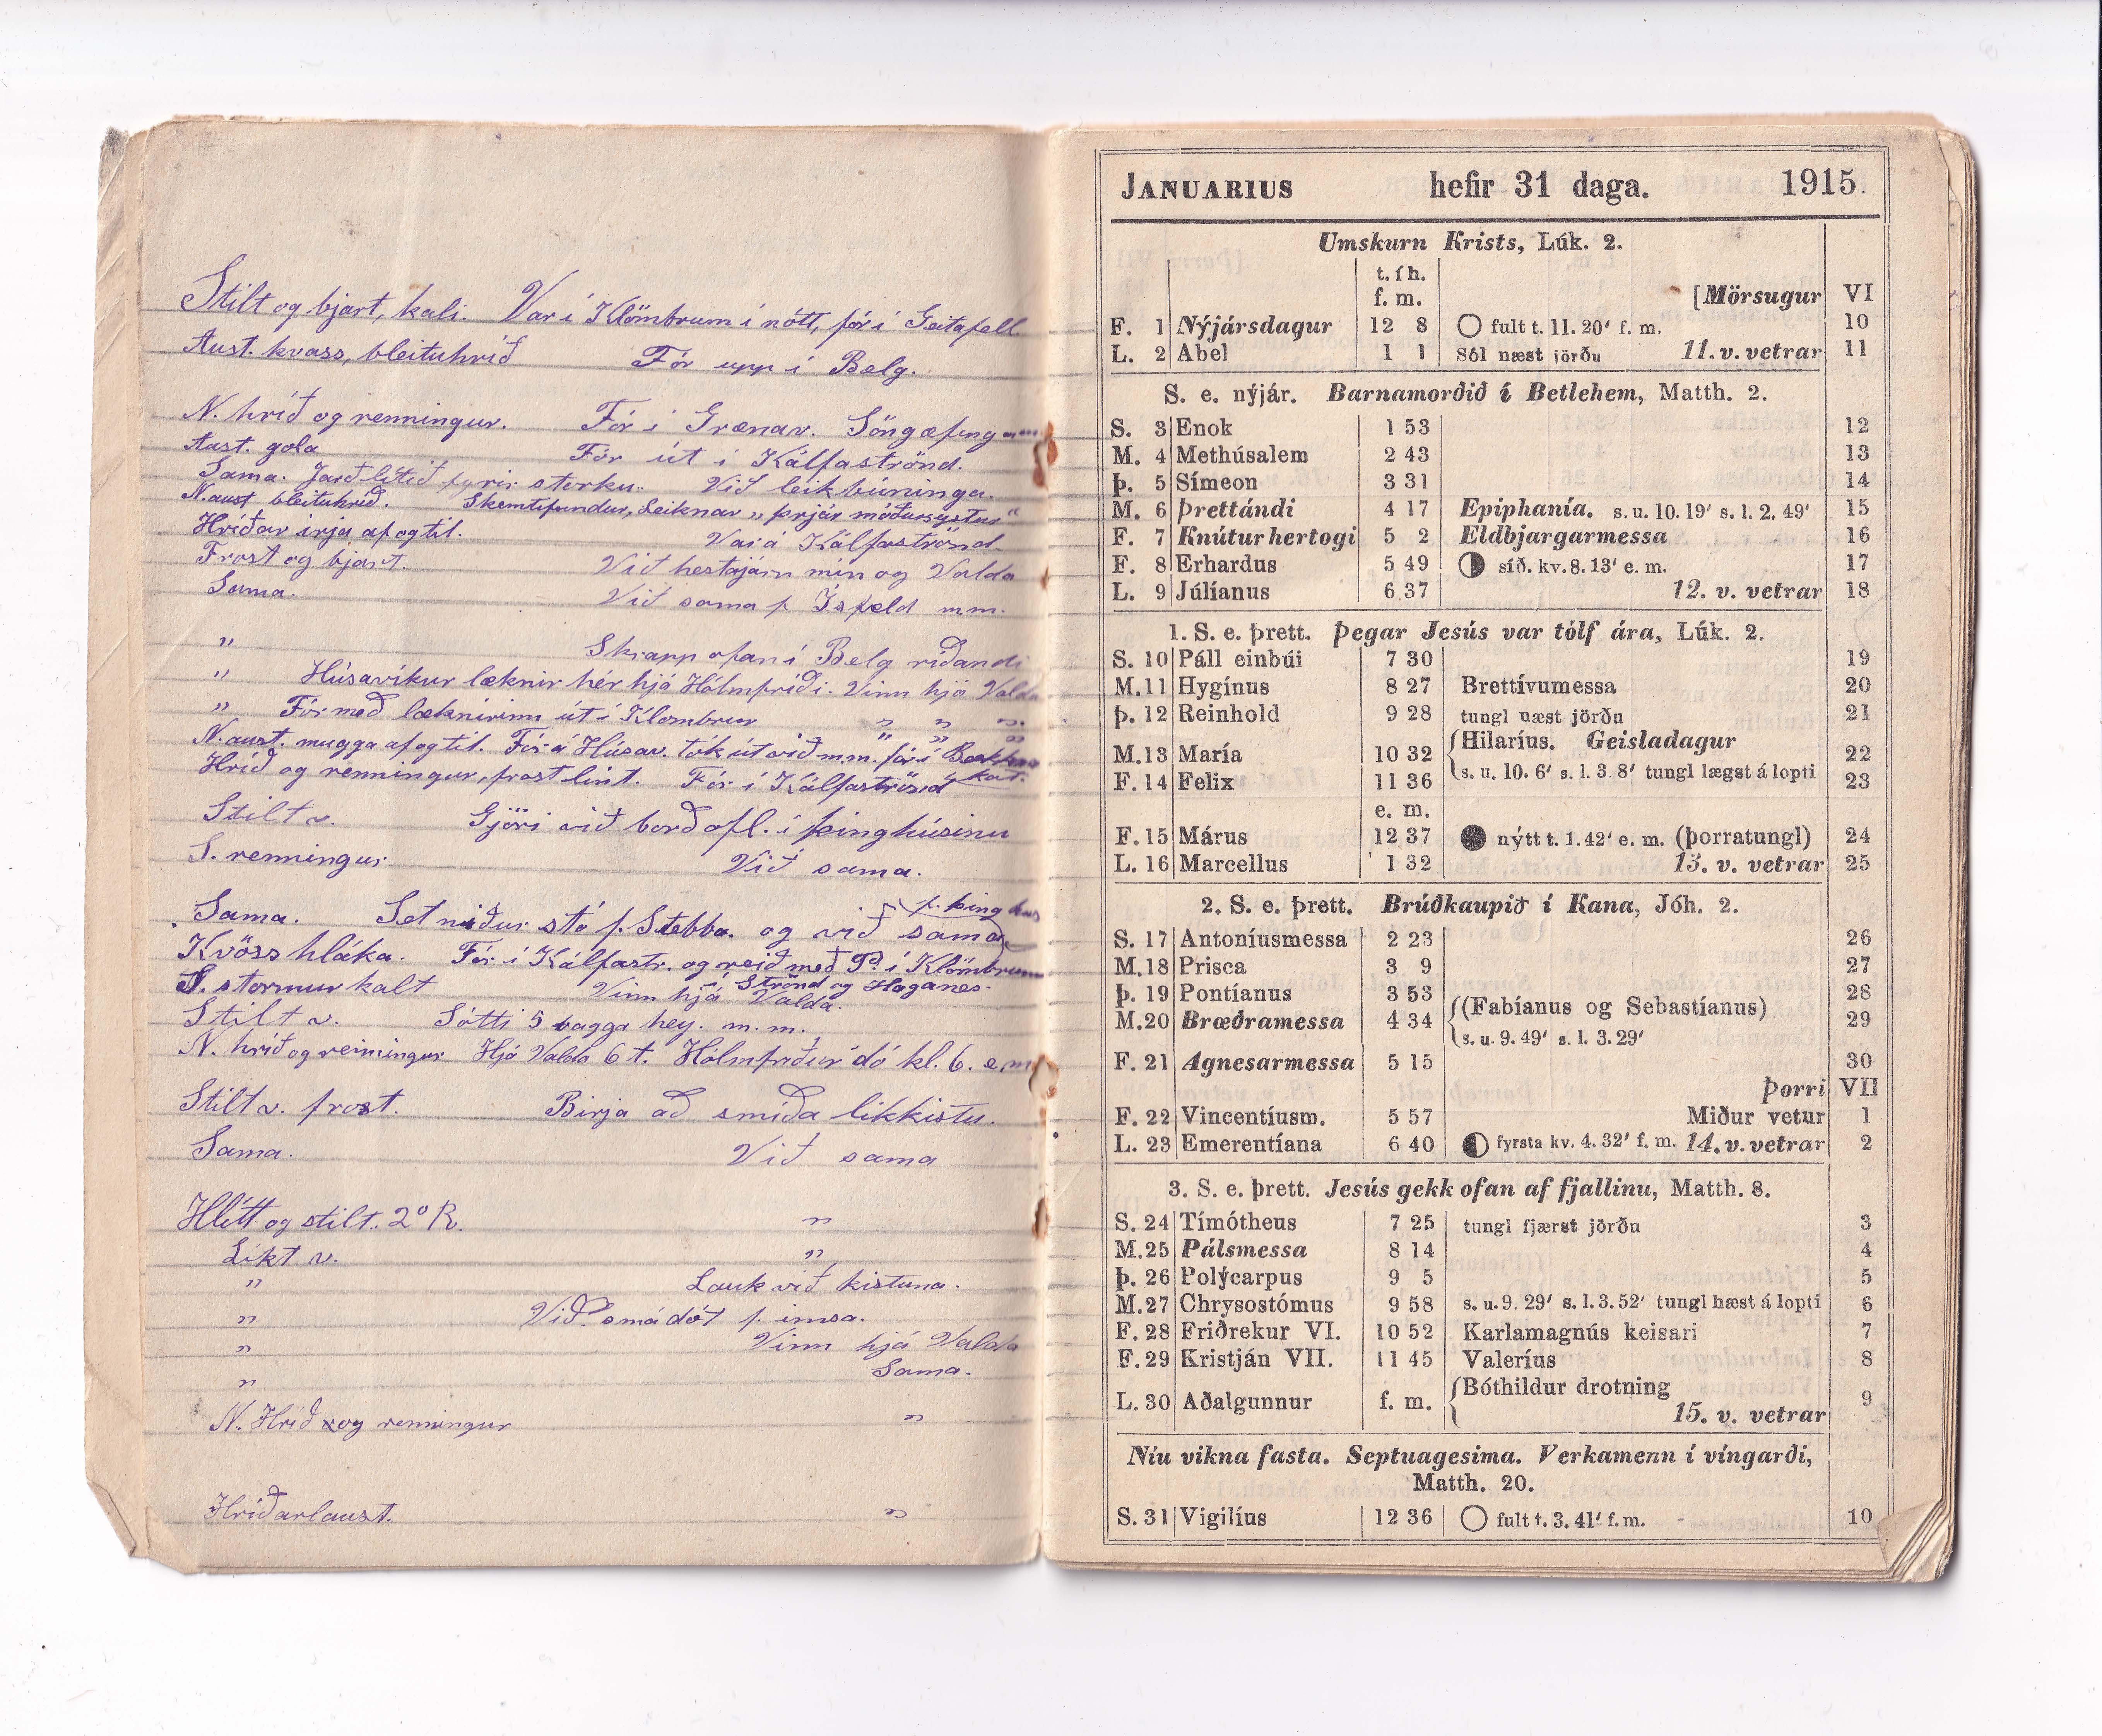 Stilt og bjart, kali. Var í Klömbrum í nótt, fór í Geitafell
Aust. kvass, bleituhríð Fór upp í Belg.
N. hríð og renningur. Fór í Grænav. Söngæfing
Aust. gola Fór út í Kálfaströnd.
Sama. Jarðlítið fyrir storku. Við leikbúninga.
N.aust bleituhríð. Skemtifundur, Leiknar „þrjár móðursystur“
Hríðar irja af og til. Var á Kálfaströnd
Frost og bjart. Við hestajárn mín og Valda
Sama. Við sama f. Ísfeld m.m.
" Skrapp ofan í Belg ríðandi
" Húsavíkur læknir hér hjá Hólmfríði. Vinn hjá Valda
" Fór með lækninum út í Klömbrur " " "
N.aust. mugga af og til. Fór á Húsav. tók út við m.m. fór í
Hríð og renningur, frost lint. Fór í Kálfaströnd
Stilt v. Gjöri við borð ofl. í þinghúsinu
S. renningur Við sama.
f. þinghús
Sama. Set niður stó f. Stebba. og við sama
Kvöss hláka. Fór í Kálfastr. og reið með P. í Klömbrum
Strönd og Haganes.
S. stormur kalt Vinn hjá Valda.
Stilt v. Sótti 5 bagga hey. m.m.
N. hríð og renningur Hjá Valda 6 t. Hólmfríður dó kl. 6. e.m
Stilt v. frost. Birja að smíða líkkistu.
Sama. Við sama
Hlítt og stilt. 2° R. "
Líkt v. "
" Lauk við kistuna.
" Við smádót f. imsa.
" Vinn hjá Valda
" Sama.
N. Hríð og renningur "
Hríðarlaust. "
JANUARIUS hefir 31 daga. 1915.
Umskurn Krists, Lúk. 2.
t. í h.
f. m. [Mörsugur VI
F. 1 Nýjársdagur 12 8 ○ fult t. 11. 20′ f. m. 10
L. 2 Abel 1 1 Sól næst jörðu 11. v. vetrar 11
S. e. nýjár. Barnamorðið í Betlehem, Matth. 2.
S. 3 Enok 1 53 12
M. 4 Methúsalem 2 43 13
Þ. 5 Símeon 3 31 14
M. 6 Þrettándi 4 17 Epiphanía. s. u. 10. 19′ s. l. 2. 49′ 15
F. 7 Knútur hertogi 5 2 Eldbjargarmessa 16
F. 8 Erhardus 5 49 síð. kv. 8. 13′ e. m. 17
L. 9 Júlíanus 6 37 12. v. vetrar 18
1. S. e. þrett. Þegar Jesús var tólf ára, Lúk. 2.
S. 10 Páll einbúi 7 30 19
M. 11 Hygínus 8 27 Brettívumessa 20
Þ. 12 Reinhold 9 28 tungl næst jörðu 21
M. 13 María 10 32 {Hilaríus. Geisladagur 22
s. u. 10. 6′ s. l. 3. 8′ tungl lægst á lopti
F. 14 Felix 11 36 23
e. m.
F. 15 Márus 12 37 ● nýtt t. 1. 42′ e. m. (þorratungl) 24
L. 16 Marcellus 1 32 13. v. vetrar 25
2. S. e. þrett. Brúðkaupið í Kana, Jóh. 2.
S. 17 Antoníusmessa 2 23 26
M. 18 Prisca 3 9 27
Þ. 19 Pontíanus 3 53 28
M. 20 Bræðramessa 4 34 {(Fabíanus og Sebastíanus) 29
s. u. 9. 49′ s. l. 3. 29′
F. 21 Agnesarmessa 5 15 30
Þorri VII
F. 22 Vincentíusm. 5 57 Miður vetur 1
L. 23 Emerentíana 6 40 fyrsta kv. 4. 32′ f. m. 14. v. vetrar 2
3. S. e. þrett. Jesús gekk ofan af fjallinu, Matth. 8.
S. 24 Tímótheus 7 25 tungl fjærst jörðu 3
M. 25 Pálsmessa 8 14 4
Þ. 26 Polýcarpus 9 5 5
M. 27 Chrysostómus 9 58 s. u. 9. 29′ s. l. 3. 52′ tungl hæst á lopti 6
F. 28 Friðrekur VI. 10 52 Karlamagnús keisari 7
F. 29 Kristján VII. 11 45 Valeríus 8
L. 30 Aðalgunnur f. m. {Bóthildur drotning 9
15. v. vetrar
Níu vikna fasta. Septuagesima. Verkamenn í víngarði,
Matth. 20.
S. 31 Vigilíus 12 36 ○ fult t. 3. 41′ f. m. 10